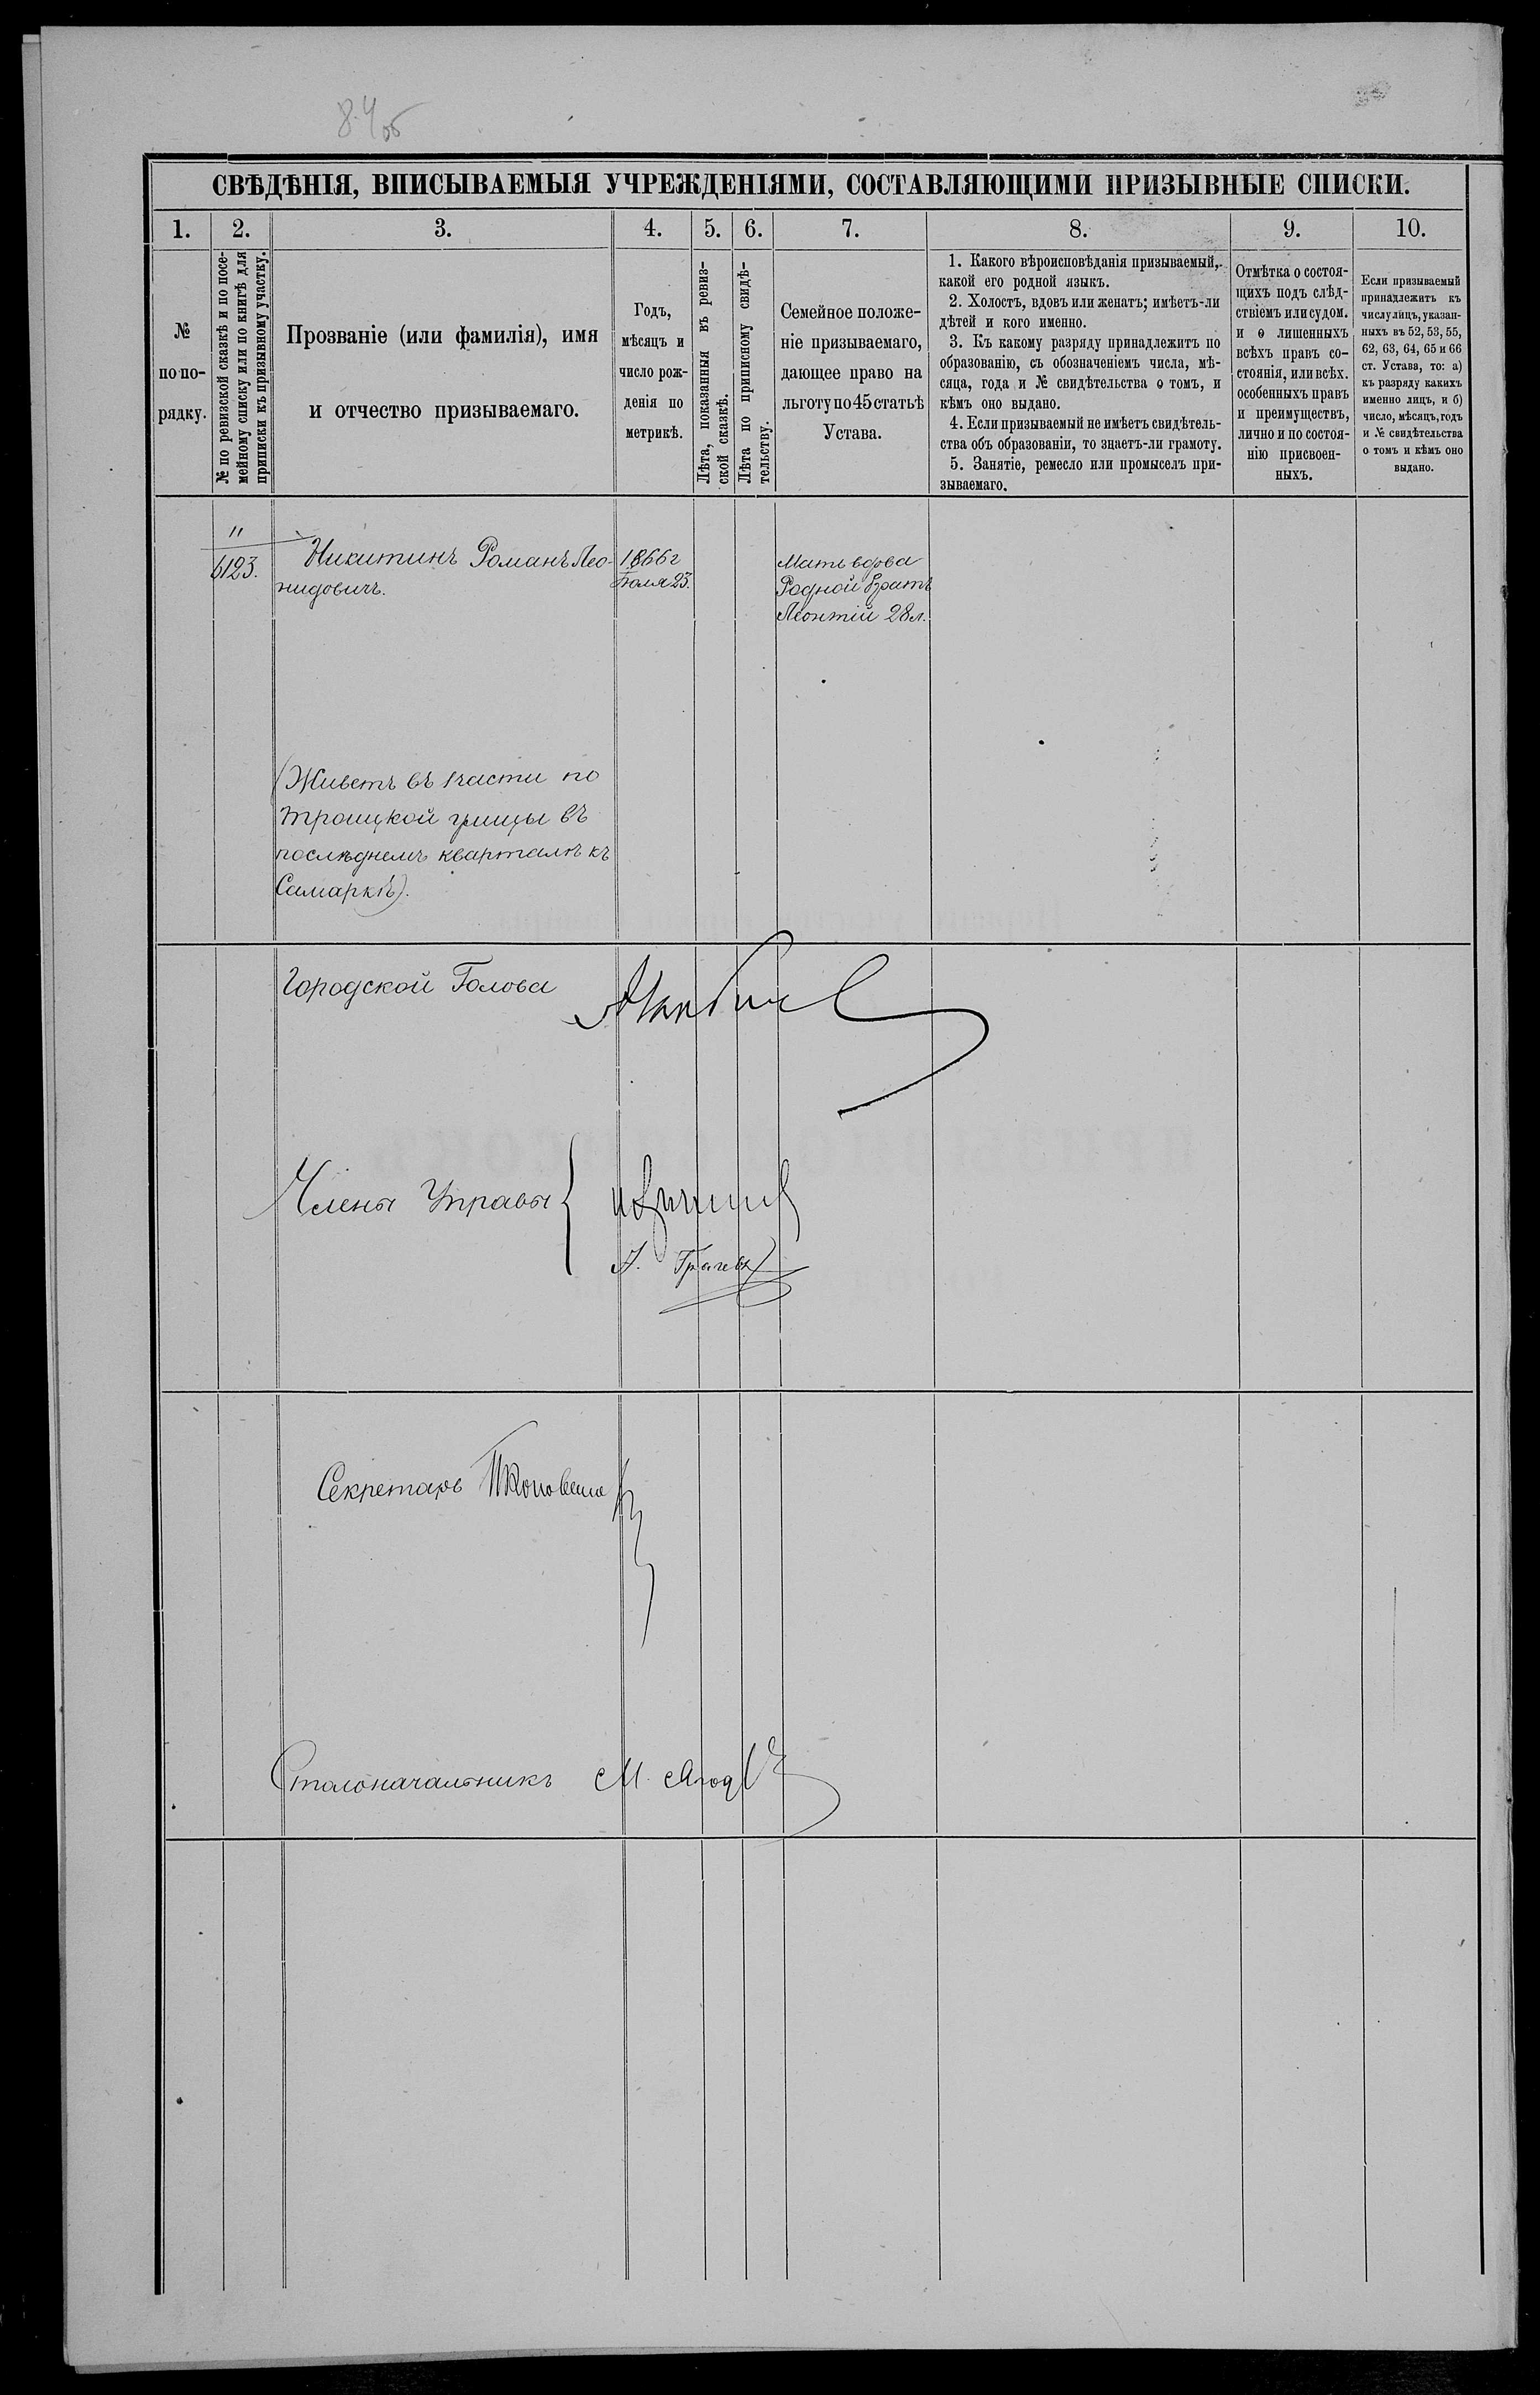 84об
СВѢДѢНІЯ, ВПИСЫВАЕМЫЯ УЧРЕЖДЕНІЯМИ, СОСТАВЛЯЮЩИМИ ПРИЗЫВНЫЕ СПИСКИ.
1.
№
по по-
рядку.
2.
№ по ревизской сказкѣ и по посе-
мейному списку или по книгѣ для
приписки къ призывному участку.
3.
Прозваніе (или фамилія), имя
и отчество призываемаго.
4.
Годъ,
мѣсяцъ и
число рож-
денія по
метрикѣ.
5.
Лѣта, показанныя въ ревиз-
ской сказкѣ.
6.
Лѣта по приписному свидѣ-
тельству.
7.
Семейное положе-
ніе призываемаго,
дающее право на
льготу по 45 статьѣ
Устава.
8.
1. Какого вѣроисповѣданія призываемый,
какой его родной языкъ.
2. Холостъ, вдовъ или женатъ; имѣетъ-ли
дѣтей и кого именно.
3. Къ какому разряду принадлежитъ по
образованію, съ обозначеніемъ числа, мѣ-
сяца, года и № свидѣтельства о томъ, и
кѣмъ оно выдано.
4. Если призываемый не имѣетъ свидѣтель-
ства объ образованіи, то знаетъ-ли грамоту.
5. Занятіе, ремесло или промыселъ при-
зываемаго.
9.
Отмѣтка о состоя-
щихъ подъ слѣд-
ствіемъ или судом.
и о лишенныхъ
всѣхъ правъ со-
стоянія, или всѣх.
особенныхъ правъ
и преимуществъ,
лично и по состоя-
нію присвоен-
ныхъ.
10.
Если призываемый
принадлежитъ къ
числу лицъ, указан-
ныхъ въ 52, 53, 55,
62, 63, 64, 65 и 66
ст. Устава, то: а)
къ разряду какихъ
именно лицъ, и б)
число, мѣсяцъ, годъ
и № свидѣтельства
о томъ и кѣмъ оно
выдано.
"
6123.
Никитинъ Романъ Лео-
нидовичъ.
1866г
Іюля 23.
Мать вдова
Родной братъ
Леонтій 28л.
(Живетъ въ 1 части по
Троицкой улицы въ
послѣднемъ кварталѣ къ
Самаркѣ).
Городской Голова
Члены Управы
Грачевъ
Секретарь
Столоначальникъ М.